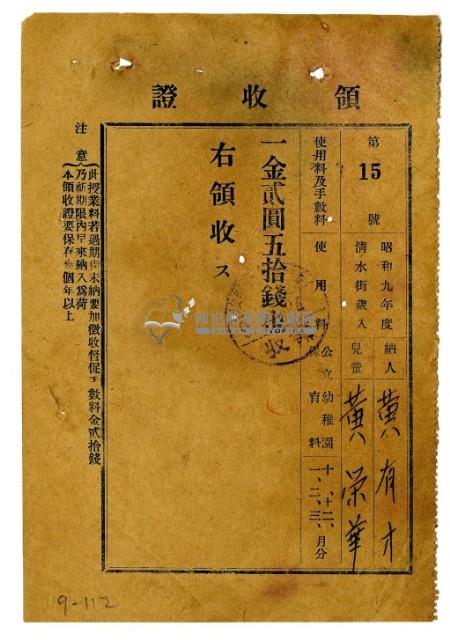 領收證
第15號
昭和九年度
清水街歲入
納人 黄有才
兒童 黄榮華
使用料及手數料
使用料
公立幼稚園保育料
十、十二、一、二、三、月分
一金貳圓五拾錢也
右領收ス
注意
此授業料若過期尚未納要加徵收督促手數料金貳拾錢
乃祈期限內早來納入為荷
本領收證要保存參個年以上
9-112